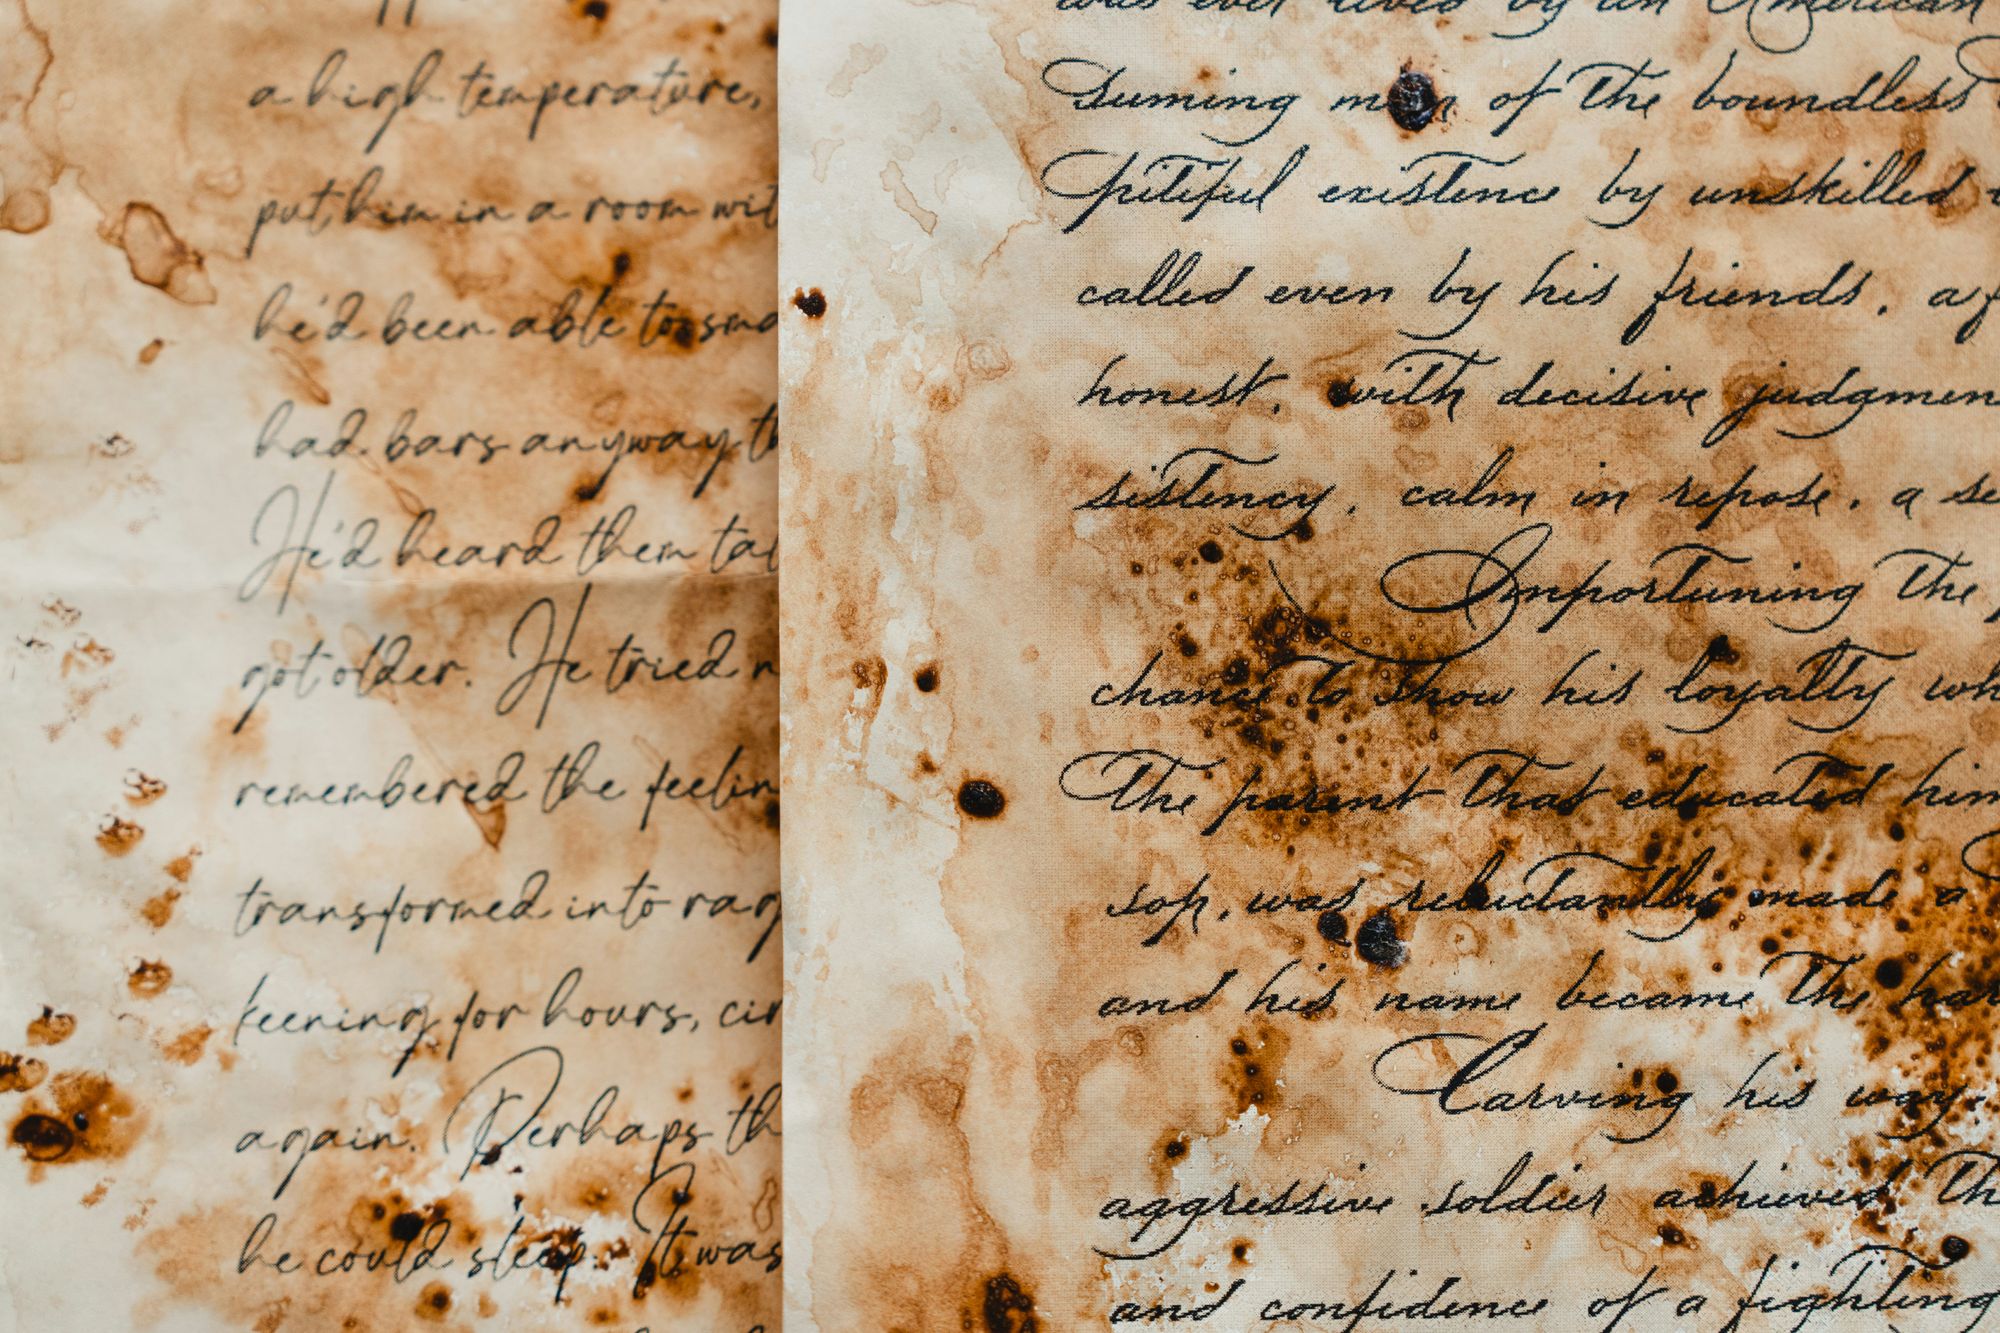 a high temperature,
put him in a room
he'd been able to
had bars anyway
He'd heard them
got older. He tried
remembered the
transformed into
keening for hours,
again. Perhaps
he could sleep. It was
was ever lived by an American
suming man of the boundless
pitiful existence by unskilled
called even by his friends, a
honest, with decisive
sistency, calm in repose, a
Importuning the
chance to show his loyalty
the parent that educated him
sop, was reluctantly made a
and his name became the
Carving his way
aggressive soldier achieved
and confidence of a fighting